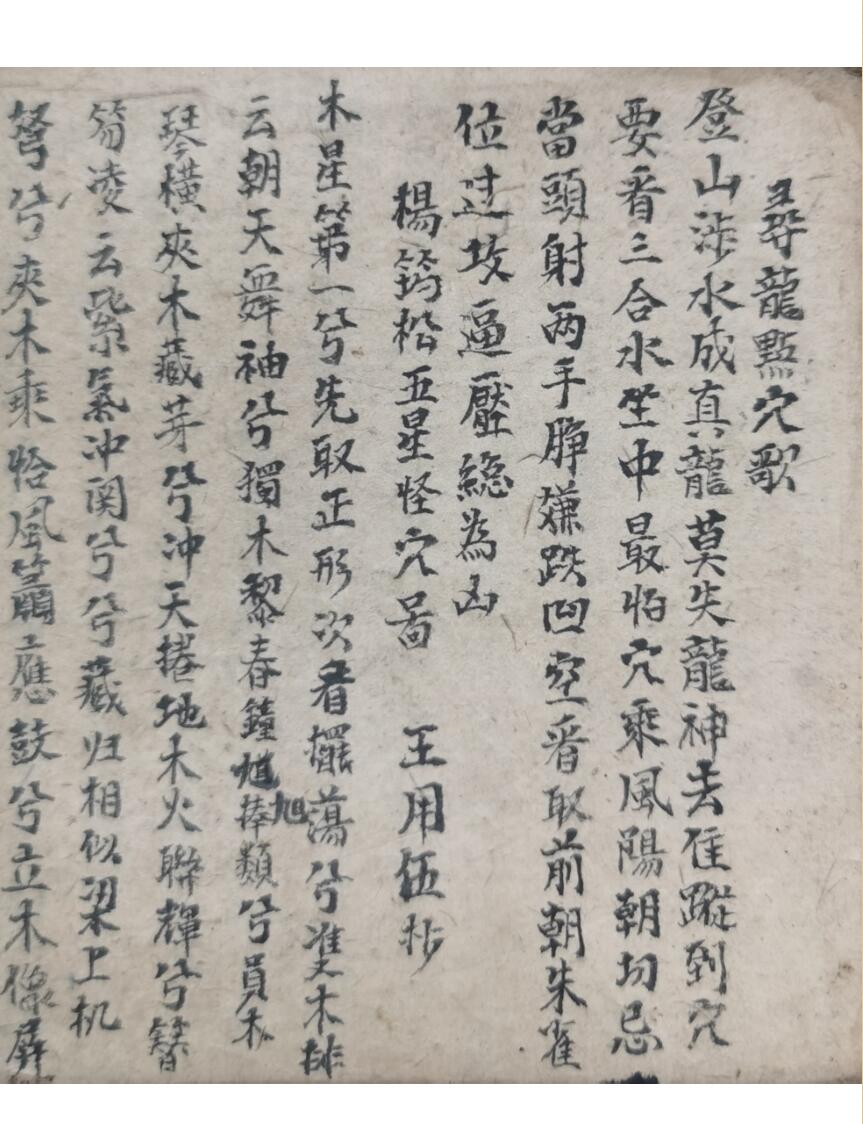 尋龍點穴歌
登山涉水成真龍莫失龍神去住蹤到穴
要看三合水坐中最怕穴乘風陽朝切忌
當頭射两手睜嫌跌凹空看取前朝朱雀
位过攻逼壓總為凶
楊筠松五星怪穴啚 王用伍抄
木星第一兮先取正形次看擺蕩兮木排
云朝天舞袖兮獨木黎春鐘馗旭捧類兮員木
琴橫夾木藏芽兮冲天捲地木火聯輝兮簪
笏凌云紫氣冲関兮兮藏归相似梁上机
弩兮夾木乘怡風應鼓兮立木像屏